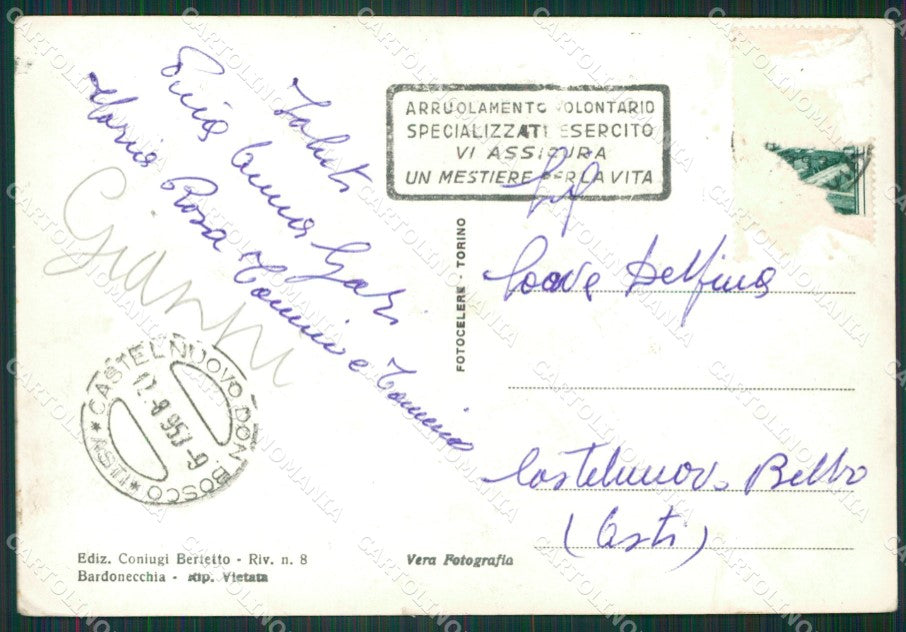 Saluti
Pina Anna Gabri
Maria Rosa Tonino e Tonino
Gianni
ARRUOLAMENTO VOLONTARIO
SPECIALIZZATI ESERCITO
VI ASSICURA
UN MESTIERE PER LA VITA
FOTOCELERE - TORINO
Soave Delfina
Castelnuovo Belbo
(Asti)
* CASTELNUOVO DON BOSCO * (ASTI)
12.8.953-9
Ediz. Coniugi Bertetto - Riv. n. 8
Bardonecchia - Rip. Vietata
Vera Fotografia
CARTOLINOMANIA